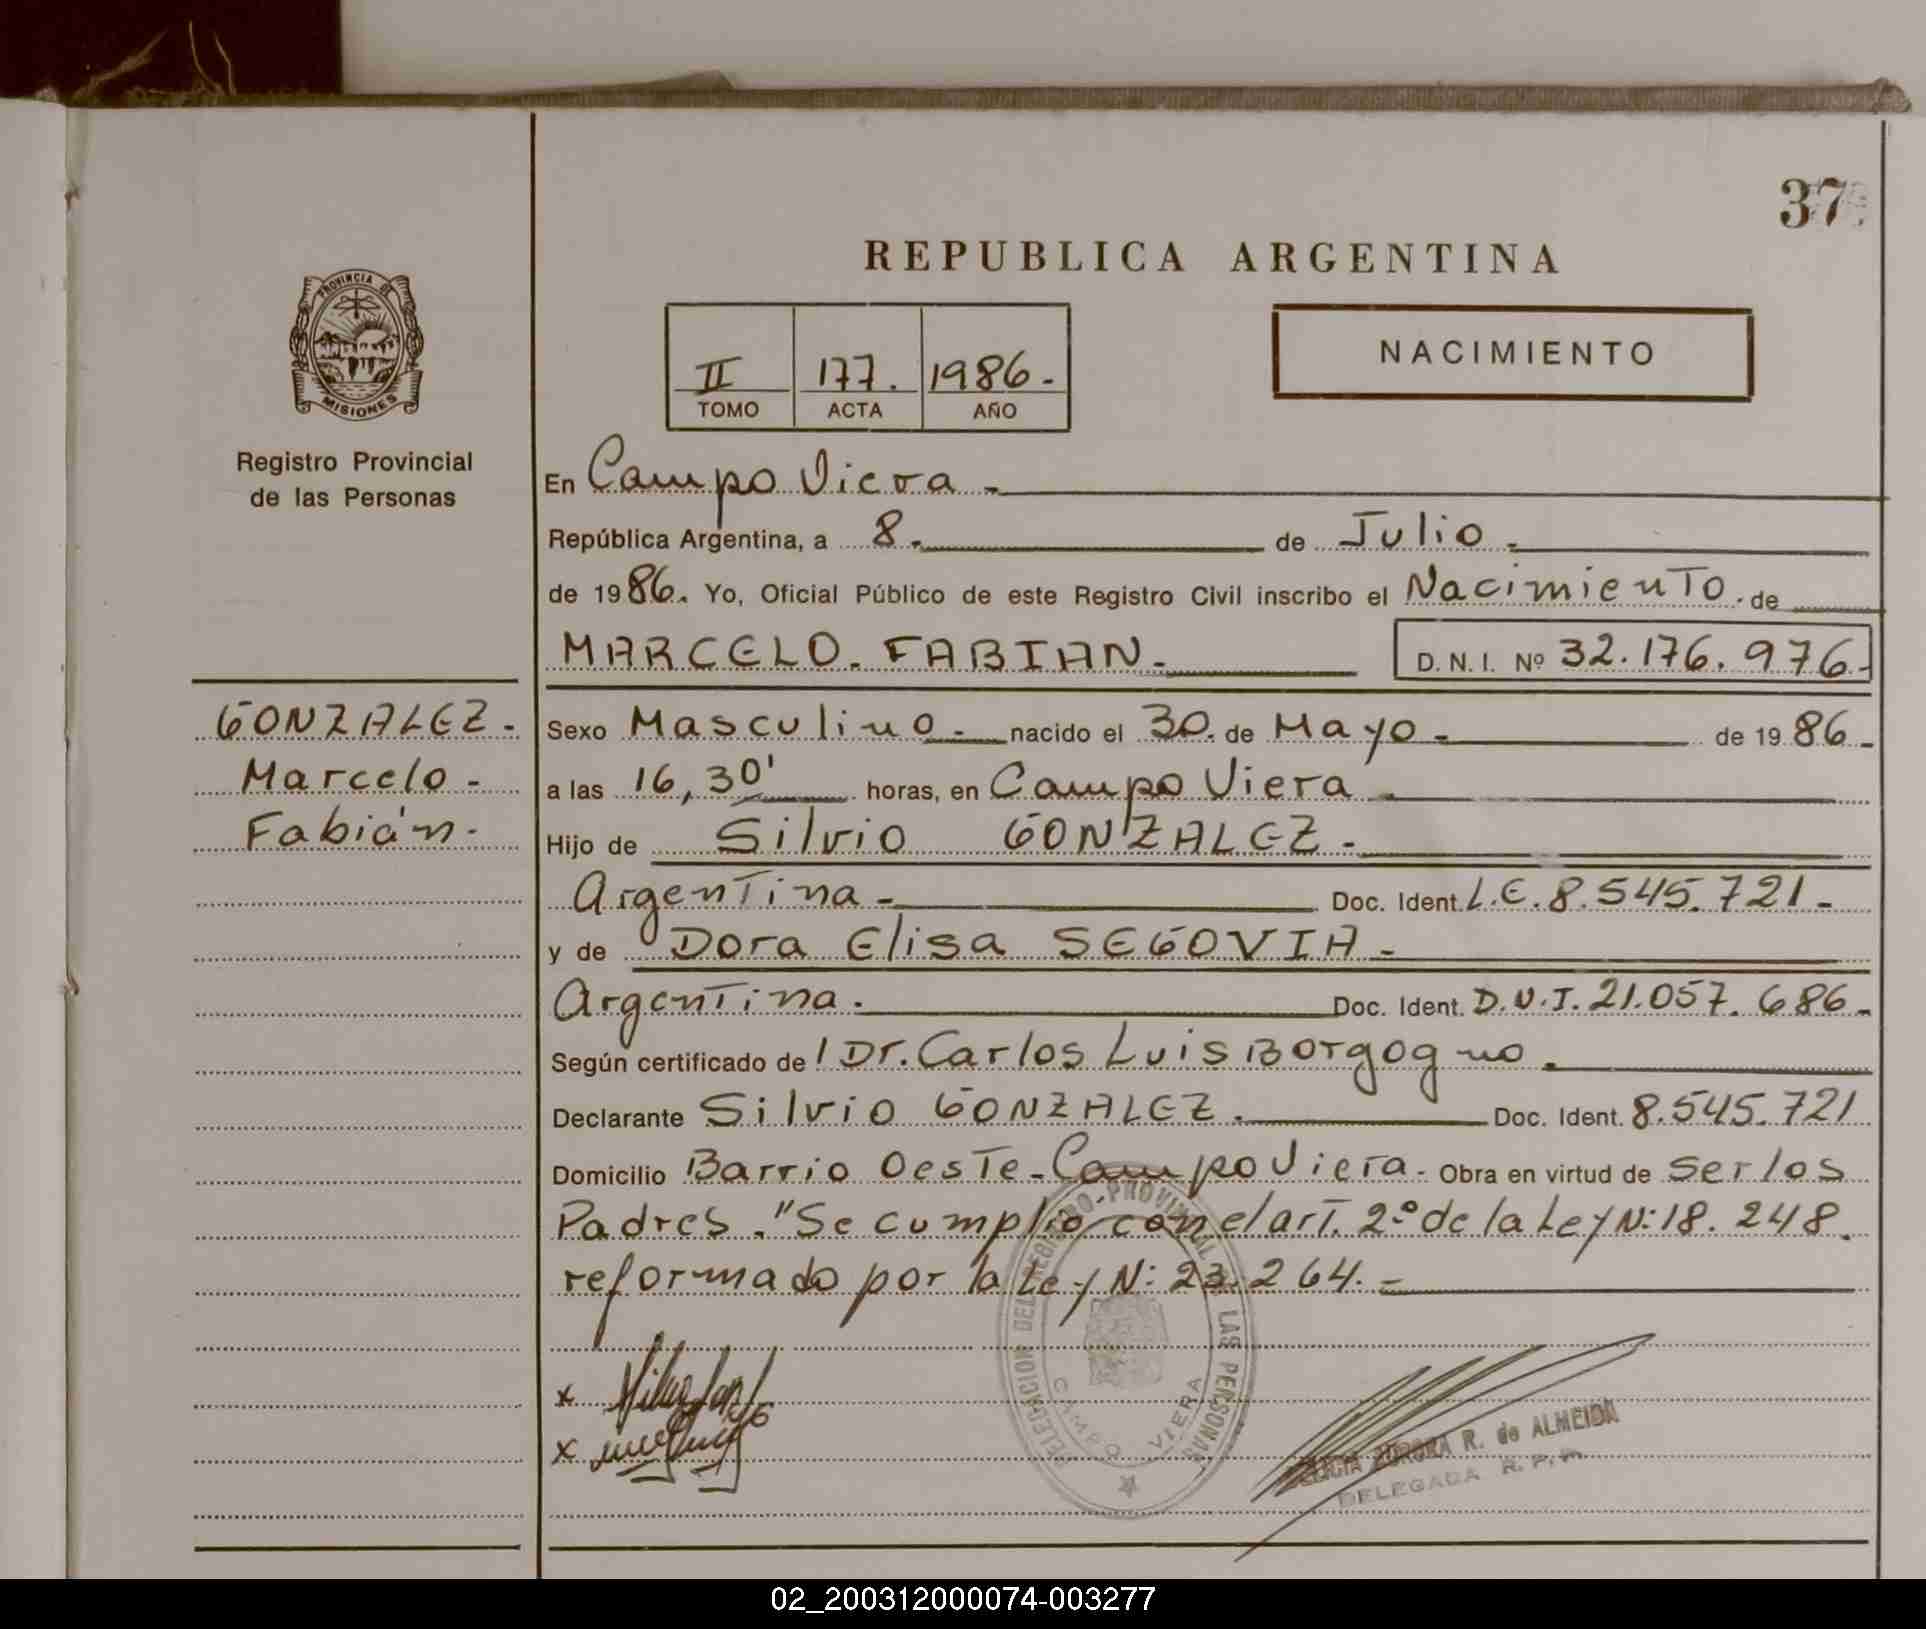 37
REPUBLICA ARGENTINA
PROVINCIA DE
MISIONES
Registro Provincial
de las Personas
II 177. 1986.-
TOMO ACTA AÑO
NACIMIENTO
En Campo Viera.-
República Argentina, a 8.- de Julio.-
de 1986. Yo, Oficial Público de este Registro Civil inscribo el Nacimiento. de
MARCELO. FABIAN.- D.N.I. Nº 32.176.976.-
GONZALEZ.-
Marcelo.-
Fabián.-
Sexo Masculino.- nacido el 30. de Mayo.- de 1986.-
a las 16,30' horas, en Campo Viera.-
Hijo de Silvio GONZALEZ.-
Argentina.- Doc. Ident. L.E. 8.545.721.-
y de Dora Elisa SEGOVIA.-
Argentina.- Doc. Ident. D.N.I. 21.057.686.-
Según certificado de / Dr. Carlos Luis Borgogno.
Declarante Silvio GONZALEZ.- Doc. Ident. 8.545.721
Domicilio Barrio Oeste-Campo Viera.- Obra en virtud de ser los
Padres. "Se cumplio con el art. 2º de la Ley N: 18.248.
reformado por la Ley N: 23.264.-
x
x
DELEGACION DEL REGISTRO PROVINCIAL DE LAS PERSONAS
CAMPO VIERA
AURORA R. de ALMEIDA
DELEGADA R. P. P.
02_200312000074-003277